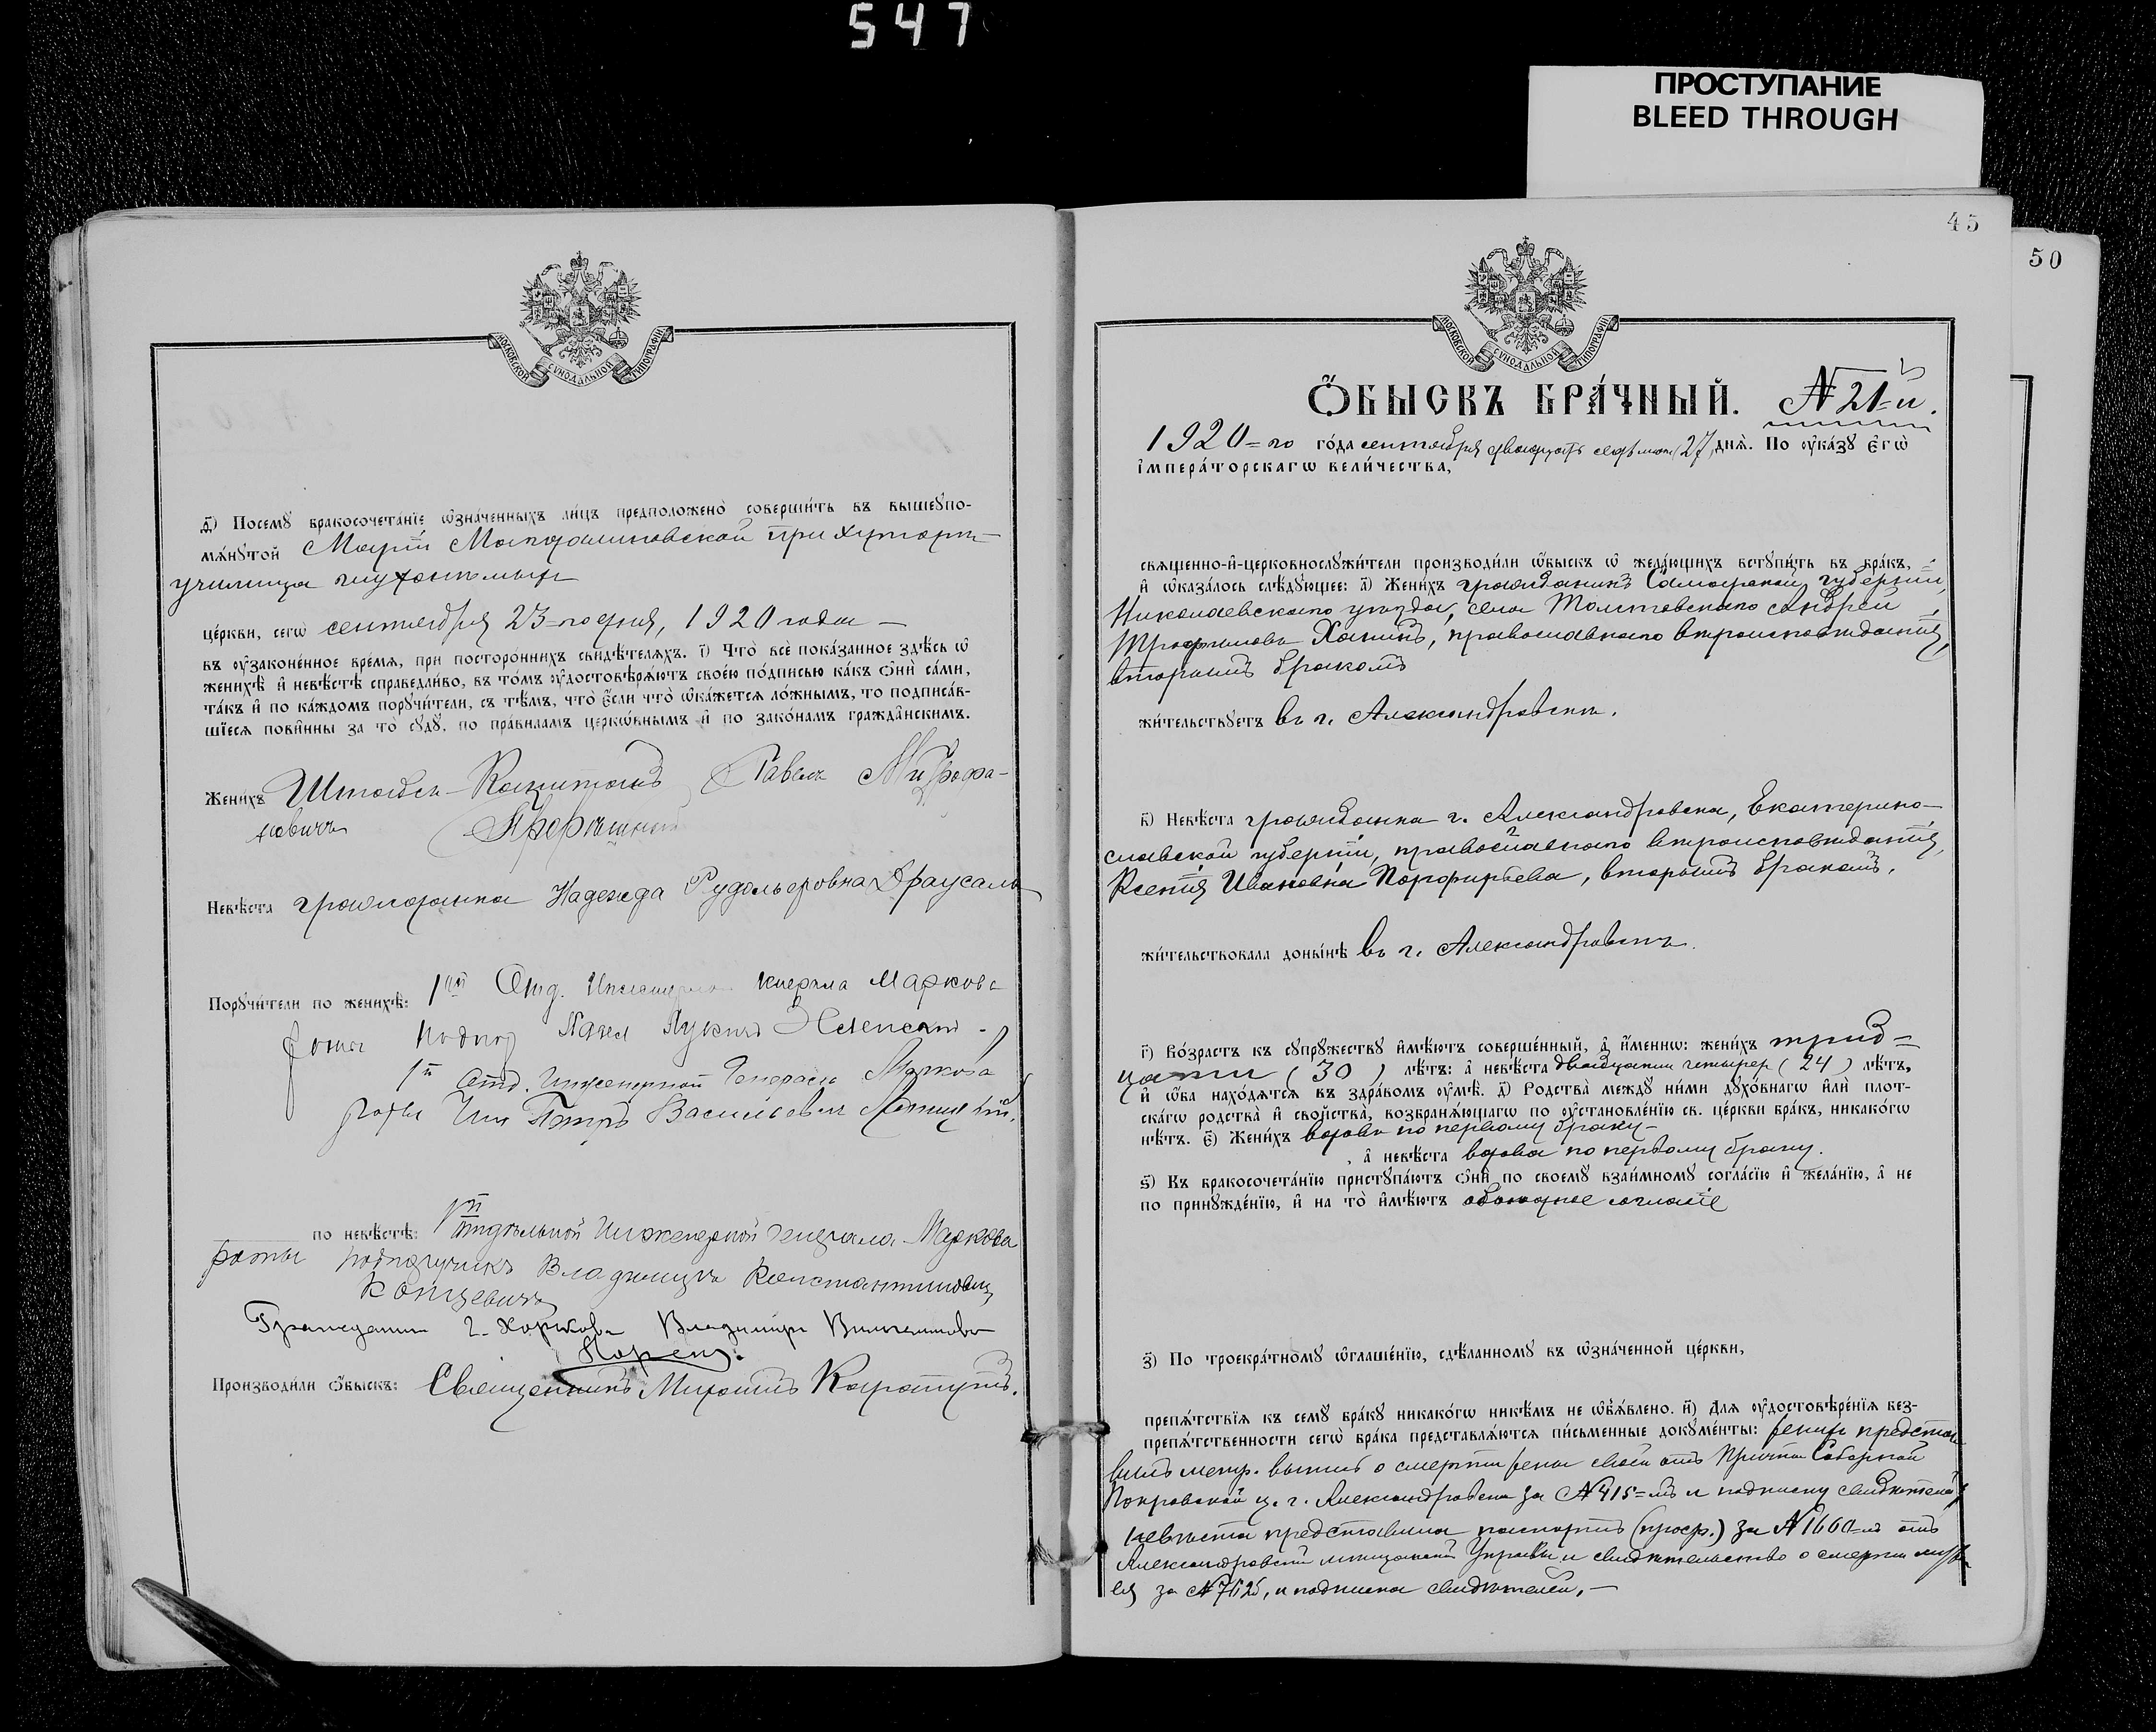 547
ПРОСТУПАНИЕ
BLEED THROUGH
45
50
МОСКОВСКОЙ СѴНОДАЛЬНОЙ ТИПОГРАФІИ
ѳ҃) Посемꙋ бракосочета́нїе ѡ҆зна́ченныхъ ли́цъ предположено̀ соверши́ть въ вышеꙋпо-
мѧ́нꙋтой Маріи Магдалиновской при хуторѣ
училища глухонѣмыхъ
це́ркви, сегѡ̀ сентября 23-го дня, 1920 года —
въ ᲂу҆зако́ненное вре́мѧ, при посторо́ннихъ свидѣ́телѧхъ. і҃) Что̀ всѐ пока́занное здѣ́сь ѡ҆
женихѣ̀ и҆ невѣ́стѣ справедли́во, въ то́мъ ᲂу҆достовѣрѧ́ютъ свое́ю по́дписью ка́къ ѻ҆нѝ са́ми,
та́къ и҆ по ка́ждомъ порꙋчи́тели, съ тѣ́мъ, что̀ є҆́сли что̀ ѡ҆ка́жетсѧ ло́жнымъ, то подписа́в-
шїесѧ пови́нны за то̀ сꙋдꙋ̀, по пра́виламъ церкѡ́внымъ и҆ по зако́намъ гражда́нскимъ.
Жени́хъ Штабсъ-Капитанъ Павелъ Митрофа-
новичъ
Невѣ́ста гражданка Надежда Рудольфовна Драусаль
Порꙋчи́тели по женихѣ̀: 1й Отд. Инженерной Генерала Маркова
роты Подпор Павел Лукичъ
1й Отд. Инженерной Генерала Маркова
роты Петръ Васильевич
по невѣ́стѣ: 1й отдѣльной Инженерной генерала Маркова
роты подпоручикъ Владимиръ Константинович
Концевичъ
Гражданин г. Харькова Владимиръ Вильгельмовъ
Производи́ли ѻ҆́быскъ: Священникъ Михаилъ
МОСКОВСКОЙ СѴНОДАЛЬНОЙ ТИПОГРАФІИ
Ѻ҆́БЫСКЪ БРА́ЧНЫЙ. № 21-й.
1920-го го́да сентября двадцать седьмого (27) днѧ̀. По ᲂу҆ка́зꙋ є҆гѡ̀
і҆мпера́торскагѡ вели́чества,
свѧще́нно-и҆-церковнослꙋжи́тели производи́ли ѻ҆́быскъ ѡ҆ жела́ющихъ встꙋпи́ть въ бра́къ,
и҆ ѡ҆каза́лось слѣ́дꙋющее: а҃) Жени́хъ гражданинъ Самарской губерніи,
Николаевскаго уѣзда, села Толстовскаго Андрей
Трофимовъ Ханинъ, православнаго вѣроисповѣданія,
вторымъ бракомъ
жи́тельствꙋетъ въ г. Александровскѣ.
в҃) Невѣ́ста гражданка г. Александровска, Екатерино-
славской губерніи, православнаго вѣроисповѣданія,
Ксенія Ивановна Порфирьева, вторымъ бракомъ,
жи́тельствовала доны́нѣ въ г. Александровскѣ.
г҃) Во́зрастъ къ сꙋпрꙋ́жествꙋ и҆мѣ́ютъ соверше́нный, а҆ и҆́меннѡ: жени́хъ трид-
цати (30) лѣ́тъ: а҆ невѣ́ста двадцати четырех (24) лѣ́тъ,
и҆ ѻ҆́ба нахо́дѧтсѧ въ здра́вомъ ᲂу҆мѣ̀. д҃) Родства̀ междꙋ̀ ни́ми дꙋхо́внагѡ и҆лѝ плот-
ска́гѡ родства̀ и҆ сво́йства, возбранѧ́ющагѡ по ᲂу҆становле́нїю св. це́ркви бра́къ, никако́гѡ
нѣ́тъ. є҃) Жени́хъ вдовъ по первому браку —
, а҆ невѣ́ста вдова по первому браку.
ѕ҃) Къ бракосочета́нїю пристꙋпа́ютъ ѻ҆нѝ по своемꙋ̀ взаи́мномꙋ согла́сїю и҆ жела́нїю, а҆ не
по принꙋжде́нїю, и҆ на то̀ и҆мѣ́ютъ обоюдное согласіе
з҃) По троекра́тномꙋ ѡ҆глаше́нїю, сдѣ́ланномꙋ въ ѡ҆зна́ченной це́ркви,
препѧ́тствїѧ къ семꙋ̀ бра́кꙋ никако́гѡ никѣ́мъ не ѡ҆б̾ѧ́влено. и҃) Для ᲂу҆достовѣре́нїѧ без-
препѧ́тственности сегѡ̀ бра́ка представлѧ́ютсѧ пи́сьменные докꙋме́нты: женихъ предста-
вилъ метр. выпись о смерти жены своей отъ Причта Соборной
Покровской ц. г. Александровска за № 415-мъ и подписку свидѣтелей,
невѣста представила паспортъ (проср.) за № 1660-мъ отъ
Александровской мѣщанской Управы и свидѣтельство о смерти мужа
ея за № 7625, и подписка свидѣтелей, —